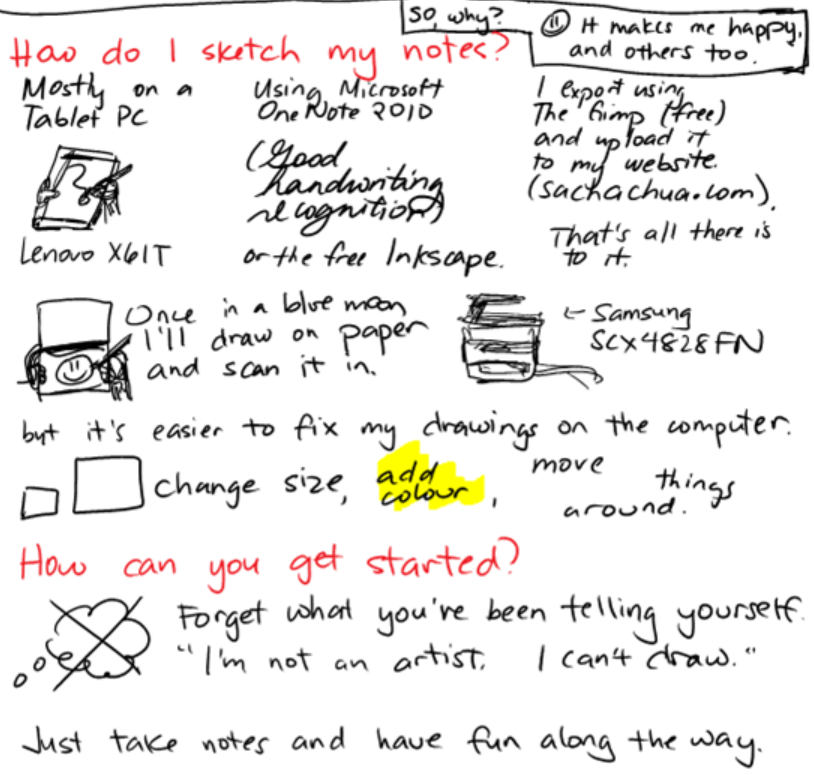 So, why?
It makes me happy,
and others too.
How do I sketch my notes?
Mostly on a
Tablet PC
Lenovo X61T
Using Microsoft
OneNote 2010
(Good
handwriting
recognition)
or the free Inkscape.
I export using
The Gimp (free)
and upload it
to my website.
(sachachua.com).
That's all there is
to it.
Once in a blue moon,
I'll draw on paper
and scan it in.
← Samsung
SCX4828FN
but it's easier to fix my drawings on the computer.
change size,
add
colour,
move
things
around.
How can you get started?
Forget what you've been telling yourself.
"I'm not an artist. I can't draw."
Just take notes and have fun along the way.